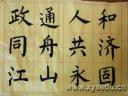 政通人和
同舟共济
江山永固
www.xysedu.cn